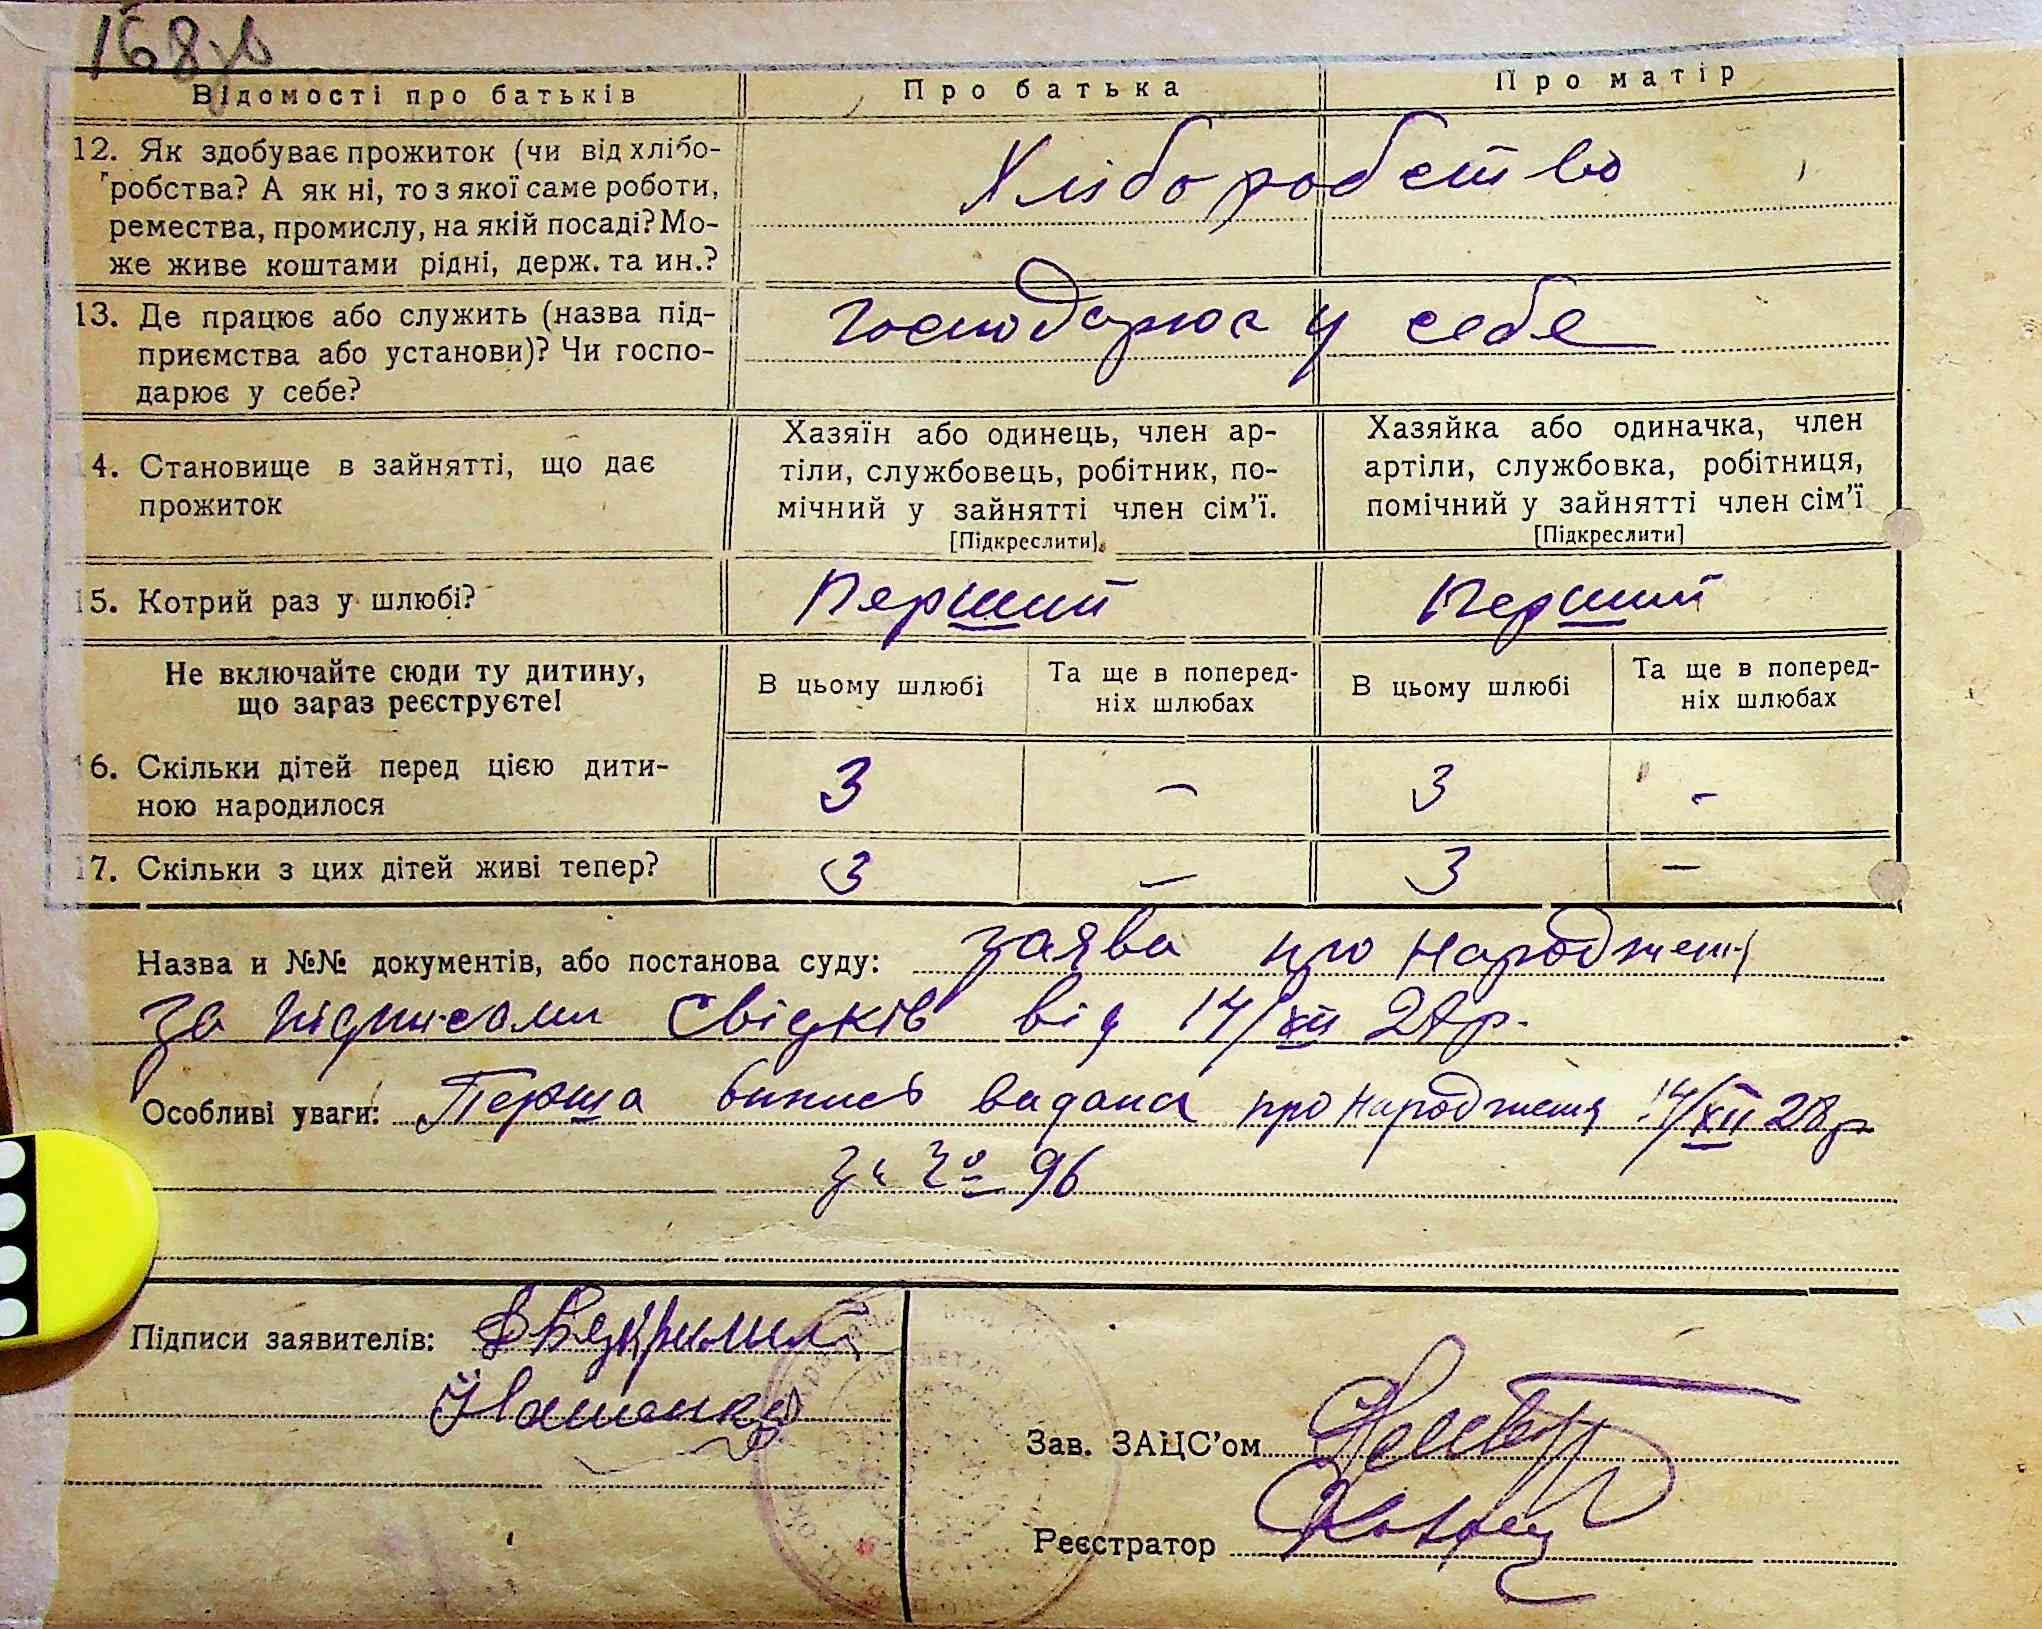 168зв
Відомості про батьків
Про батька
Про матір
12. Як здобуває прожиток (чи від хлібо-
робства? А як ні, то з якої саме роботи,
ремества, промислу, на якій посаді? Мо-
же живе коштами рідні, держ. та ин.?
Хліборобство
13. Де працює або служить (назва під-
приємства або установи)? Чи госпо-
дарює у себе?
господарює у себе
4. Становище в зайнятті, що дає
прожиток
Хазяїн або одинець, член ар-
тіли, службовець, робітник, по-
мічний у зайнятті член сім’ї.
[Підкреслити].
Хазяйка або одиначка, член
артіли, службовка, робітниця,
помічний у зайнятті член сім’ї
[Підкреслити]
15. Котрий раз у шлюбі?
Перший
Перший
Не включайте сюди ту дитину,
що зараз реєструєте!
В цьому шлюбі
Та ще в поперед-
ніх шлюбах
В цьому шлюбі
Та ще в поперед-
ніх шлюбах
16. Скільки дітей перед цією дити-
ною народилося
3 – 3 –
17. Скільки з цих дітей живі тепер?
3 – 3 –
Назва и №№ документів, або постанова суду: заява про народження
за підписами свідків від 14/XII 28р.
Особливі уваги: Перша випись видана про народження 14/XII 28р
за № 96
Підписи заявителів:
Івашенко
Зав. ЗАЦС’ом
Реєстратор